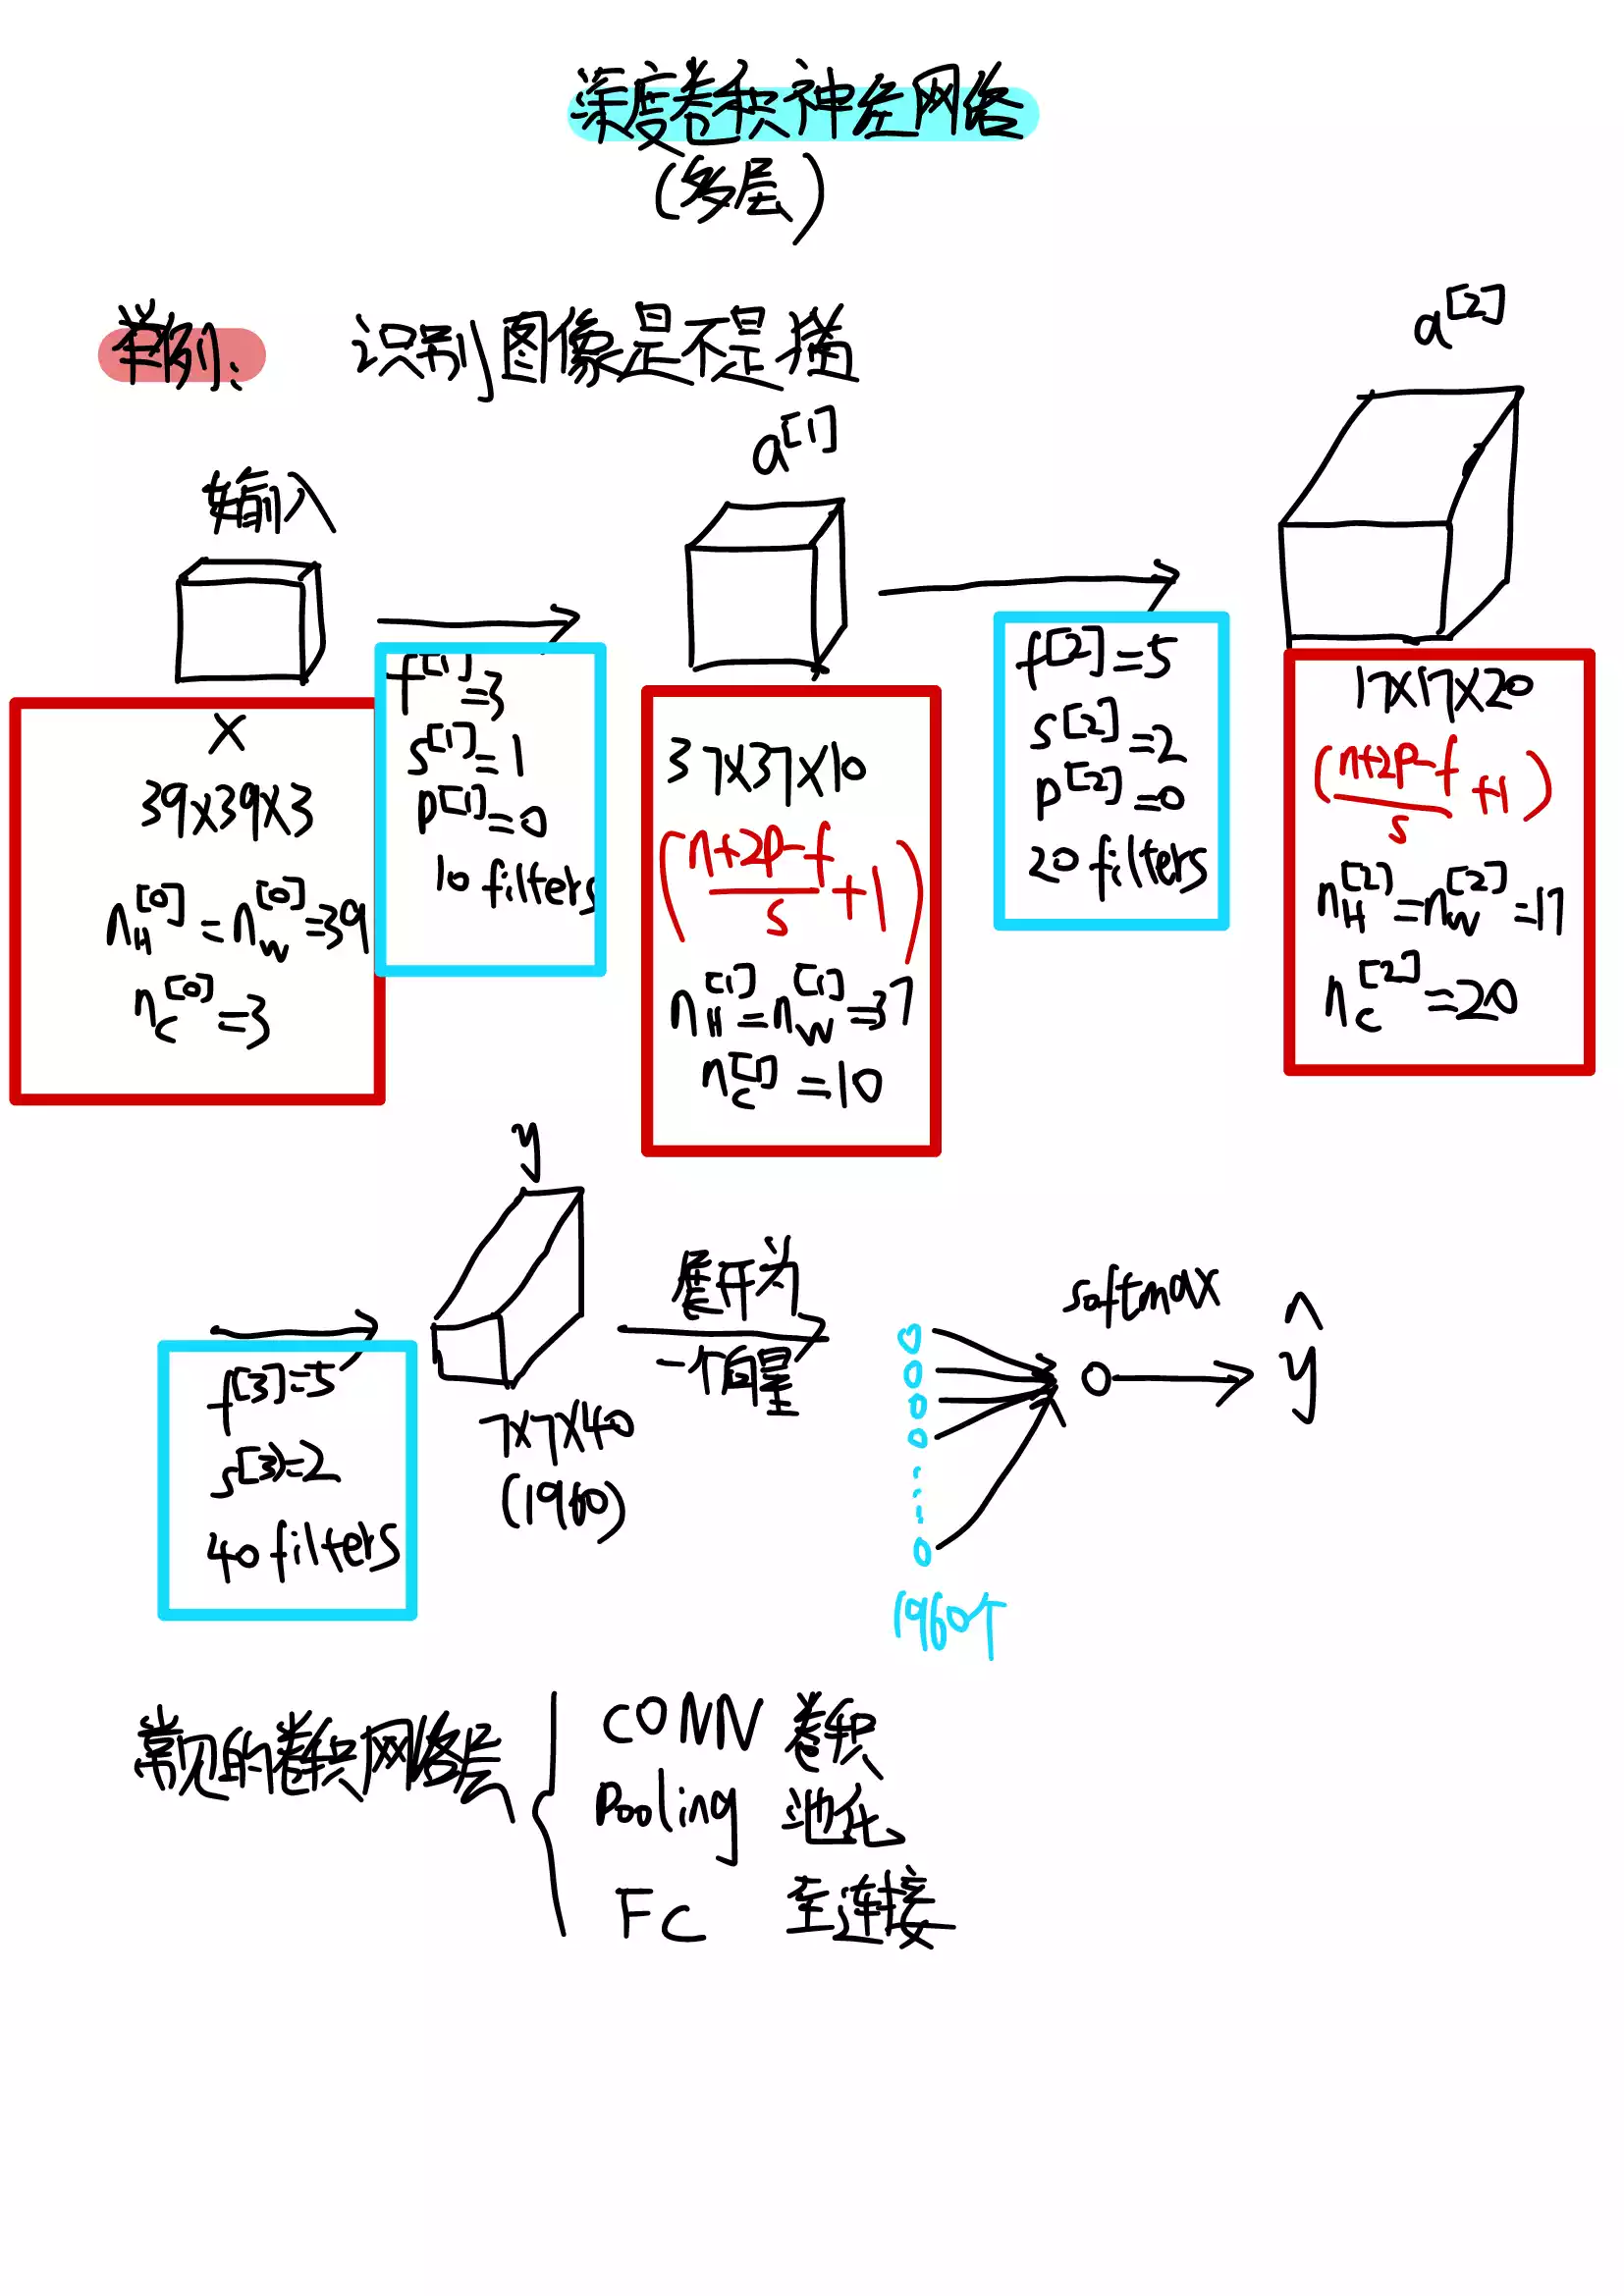 深度卷积神经网络
(多层)
举例: 识别图像是不是猫
输入
X
39×39×3
n_H^[0]=n_W^[0]=39
n_C^[0]=3
f^[1]=3
s^[1]=1
p^[1]=0
10 filters
a^[1]
37×37×10
((n+2p-f)/s+1)
n_H^[1]=n_W^[1]=37
n_C^[1]=10
f^[2]=5
s^[2]=2
p^[2]=0
20 filters
a^[2]
17×17×20
((n+2p-f)/s+1)
n_H^[2]=n_W^[2]=17
n_C^[2]=20
f^[3]=5
s^[3]=2
40 filters
y
7×7×40
(1960)
展开为
一个向量
1960个
softmax
ŷ
常见的卷积网络层
CONN 卷积
Pooling 池化
FC 全连接